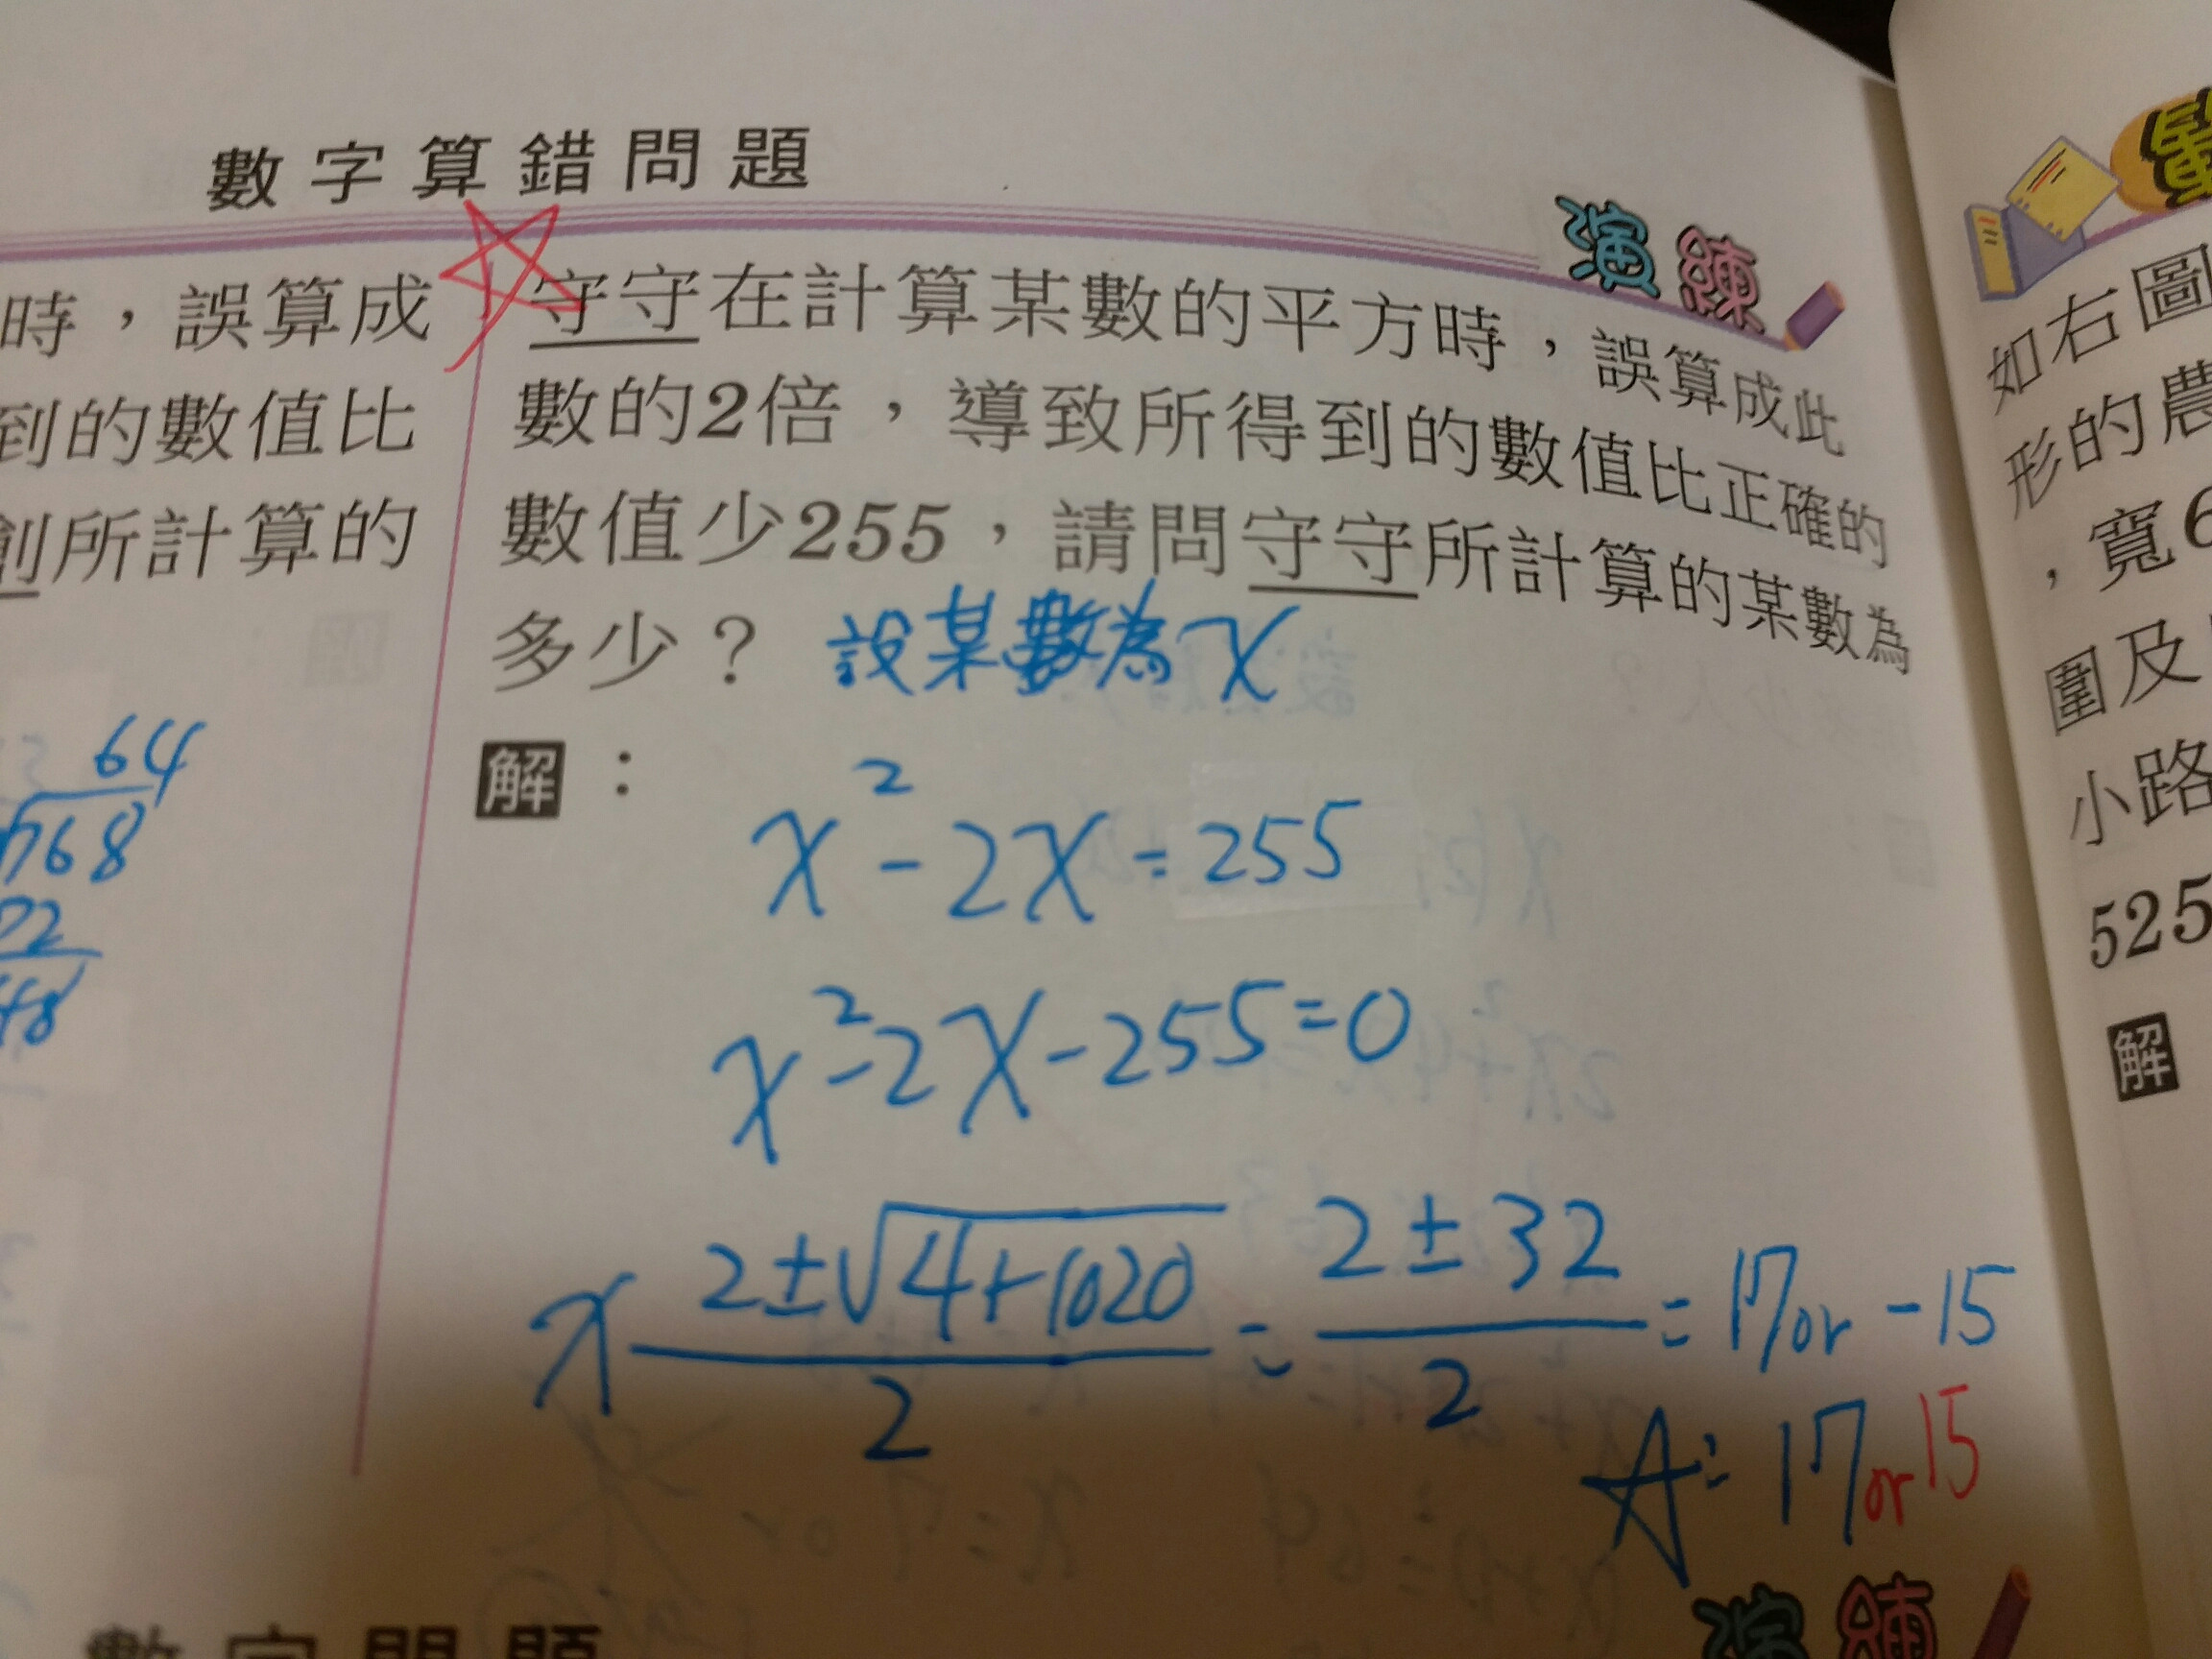 數字算錯問題
演練
時，誤算成
到的數值比
創所計算的
64
768
72
48
守守在計算某數的平方時，誤算成此
數的2倍，導致所得到的數值比正確的
數值少255，請問守守所計算的某數為
多少？ 設某數為x
解：
x²-2x=255
x²-2x-255=0
x 2±√4+1020 / 2 = 2±32 / 2 = 17 or -15
A: 17 or 15
數字問題
演練
如右圖
形的農
，寬6
圍及
小路
525
解